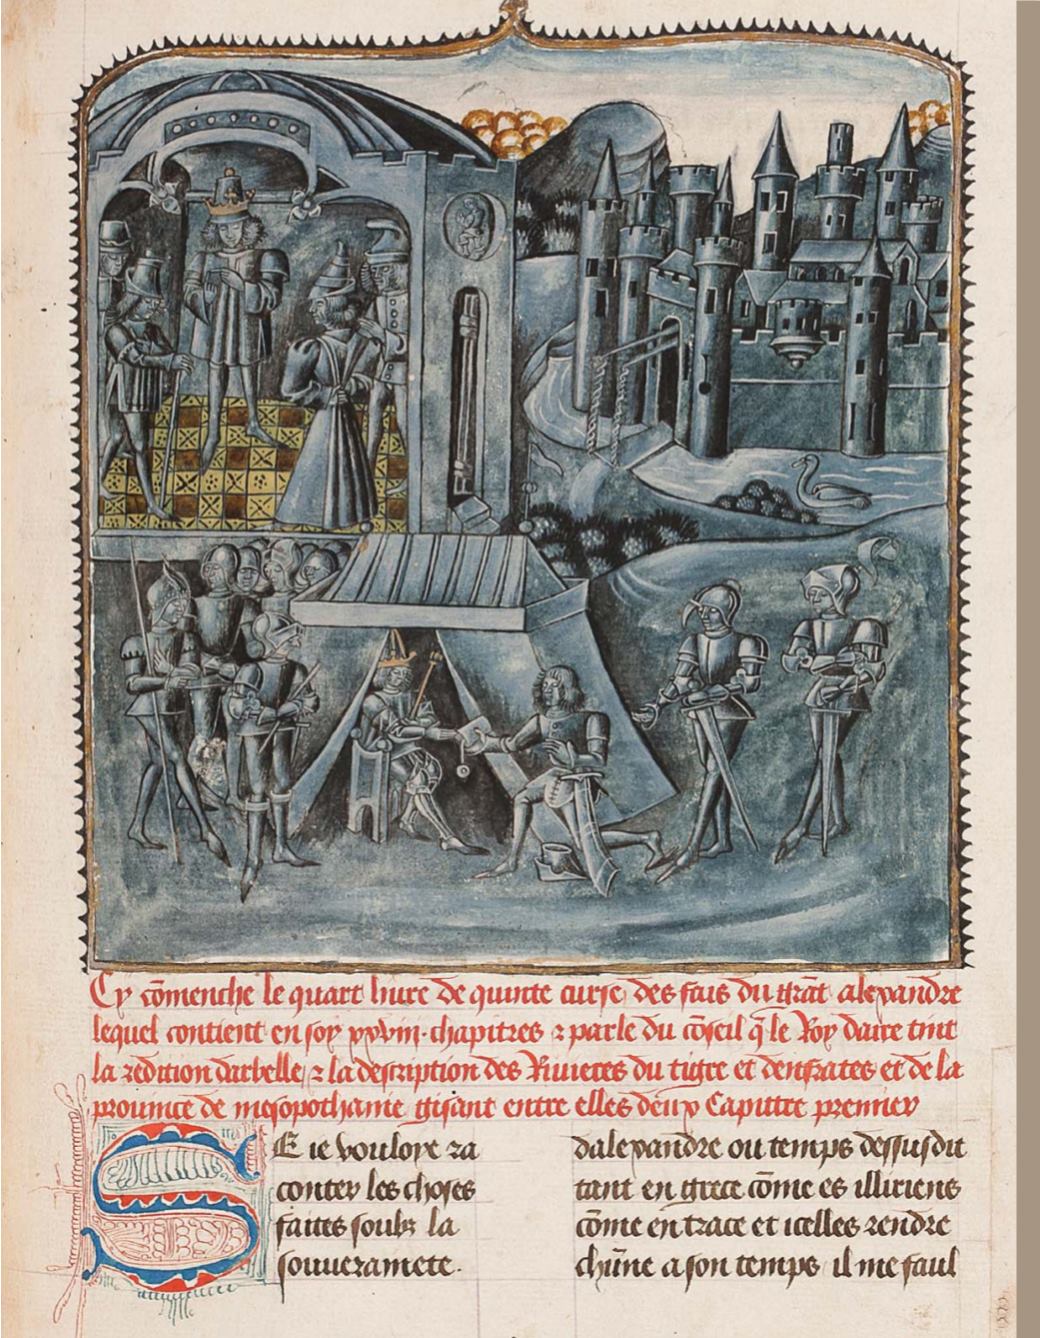 Cy cōmenche le quart liure de quinte curse des fais du grāt alexandre
lequel contient en soy xxviii· chapitres ⁊ parle du cōseil q̄ le Roy daire tint
la redition darbelle / ⁊ la description des Riuieres du tigre et deufrates et de la
prouince de mesopothamie gisant entre elles deux Capittre premier
SE ie vouloye ra
conter les choses
faites soubz la
souueramete·
dalexandre ou temps dessusdit
tant en grece cōme es illiriens
cōme en trace et icelles rendre
chūne a son temps il me faul